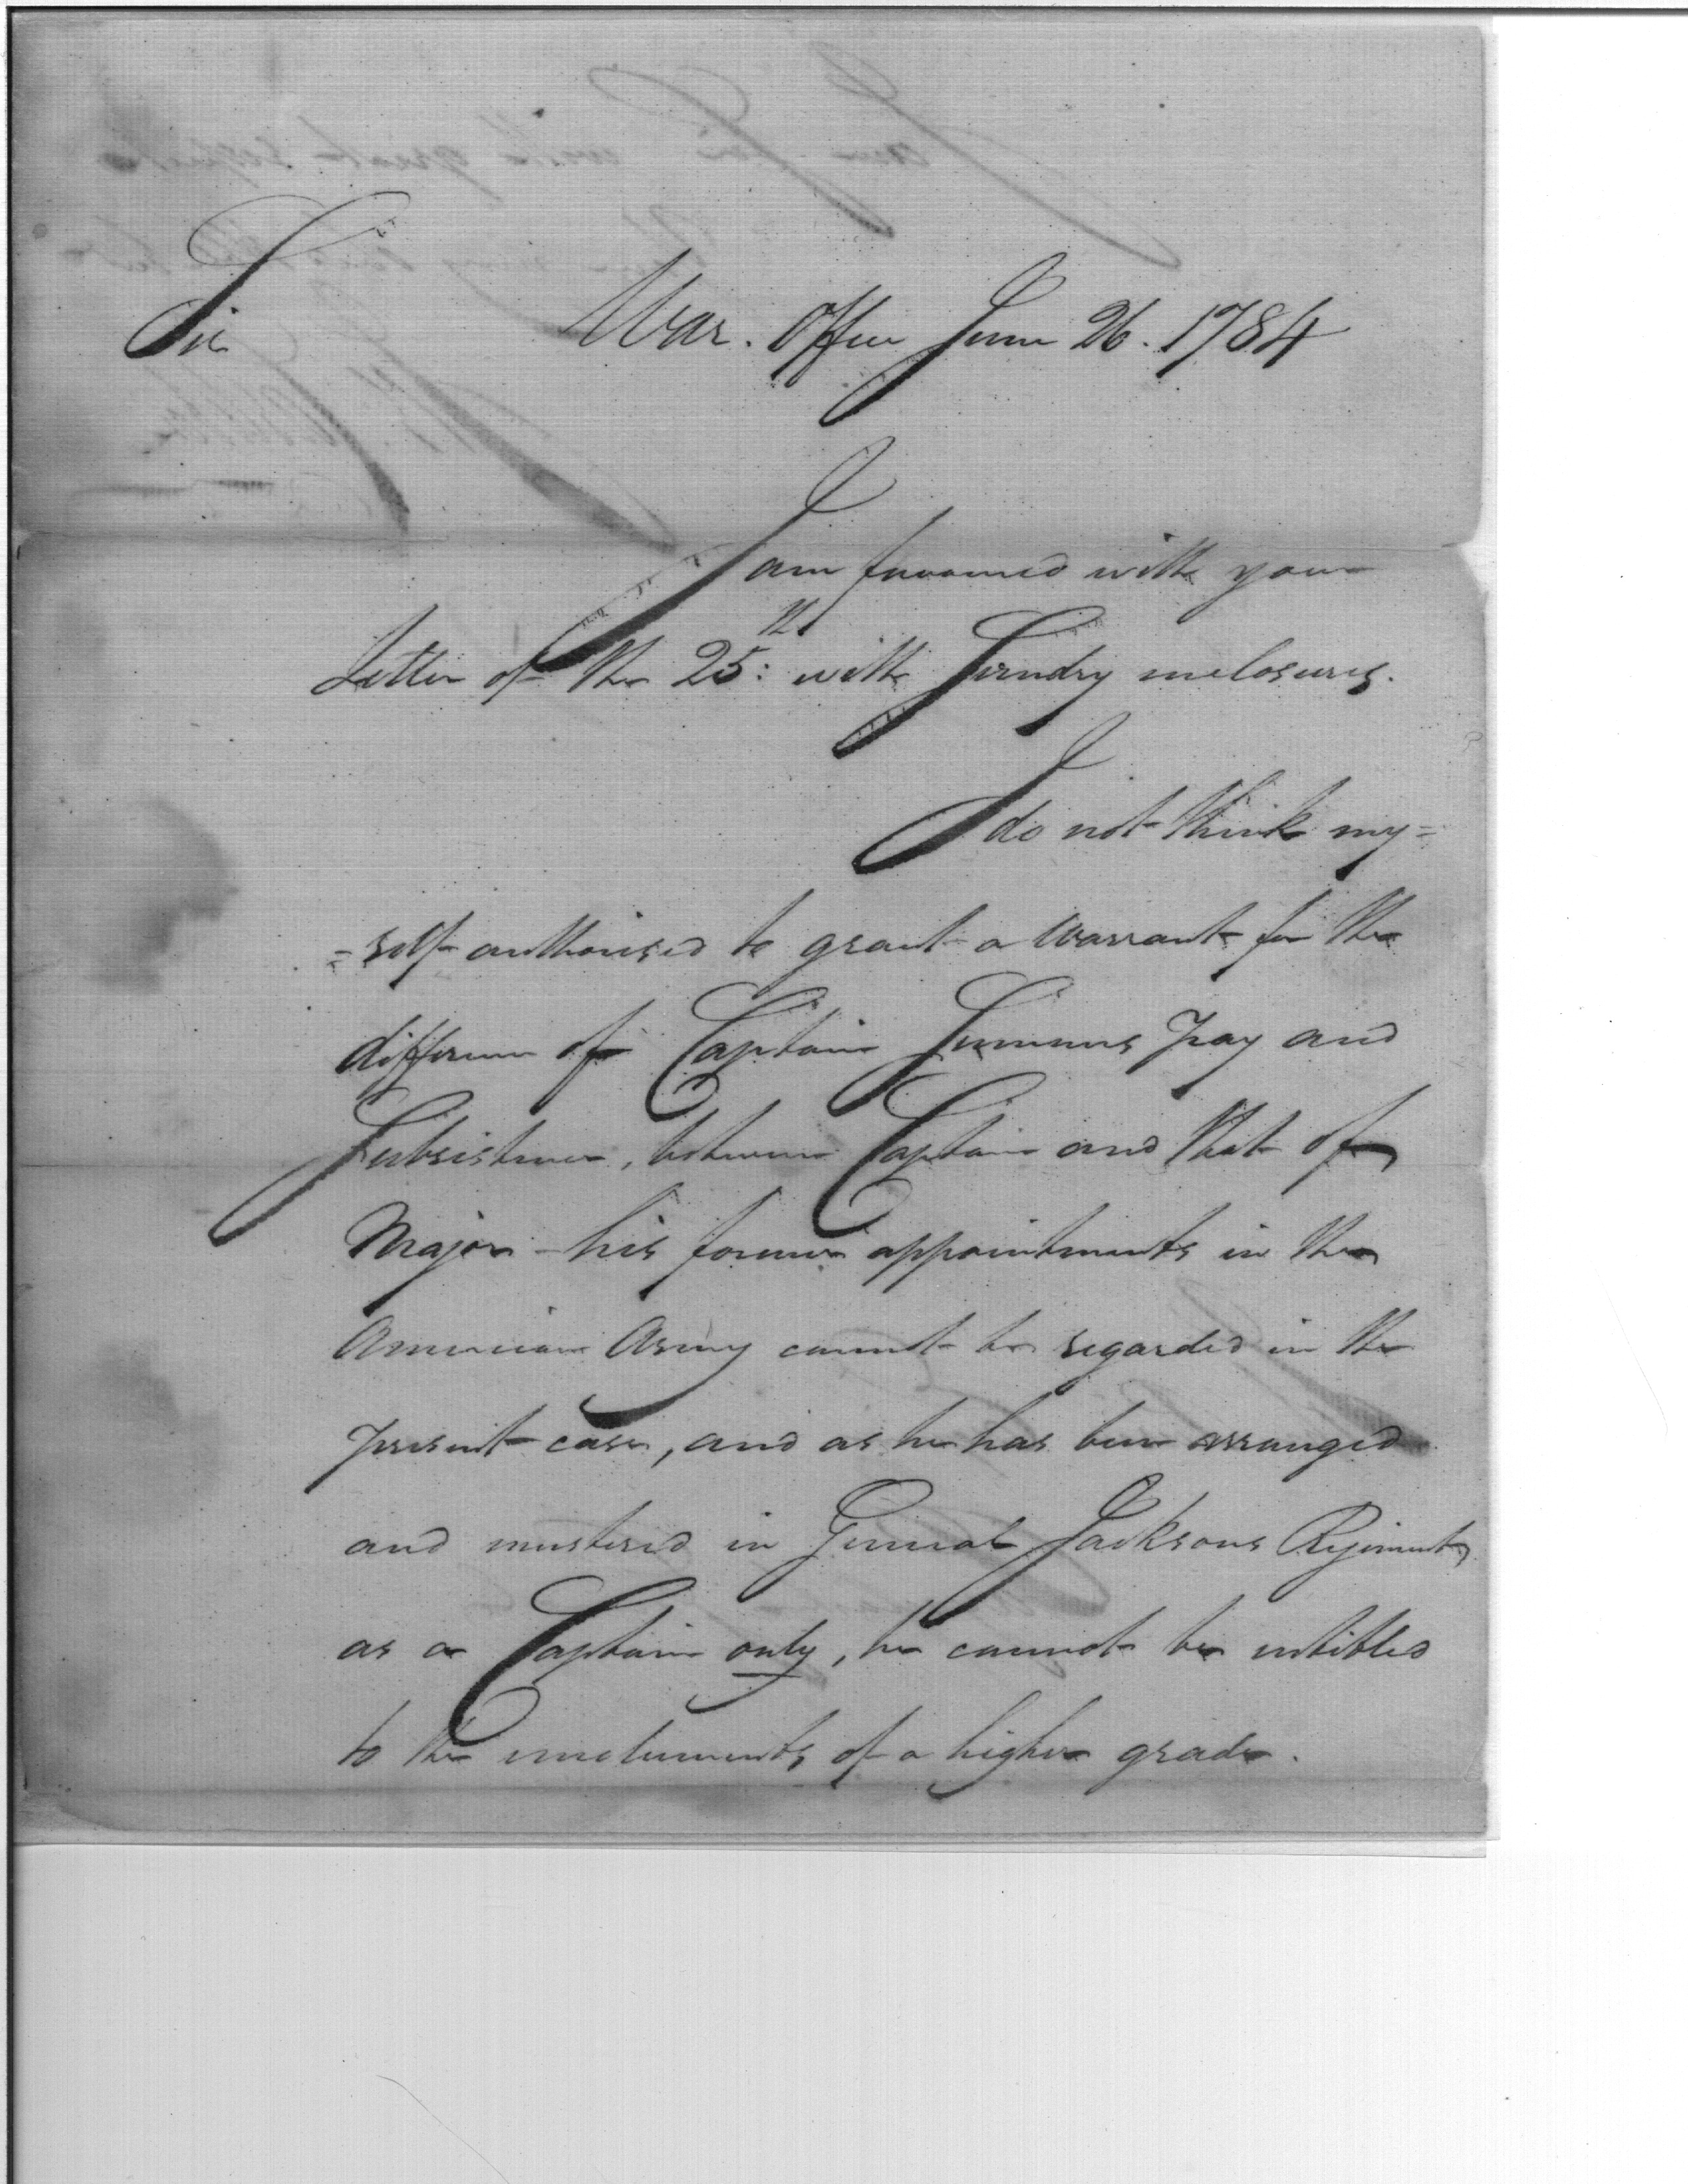 Sir
War. Office June 26. 1784
I am favoured with your
Letter of the 25:th with Sundry inclosures.
I do not think my=
=self authorised to grant a Warrant for the
difference of Captain Pay and
Subsistence, between Captain and that of
Major - his former appointments in the
American Army cannot be regarded in the
present case, and as he has been arranged
and mustered in General Jacksons Regiment
as a Captain only, he cannot be intitled
to the emoluments of a higher grade.